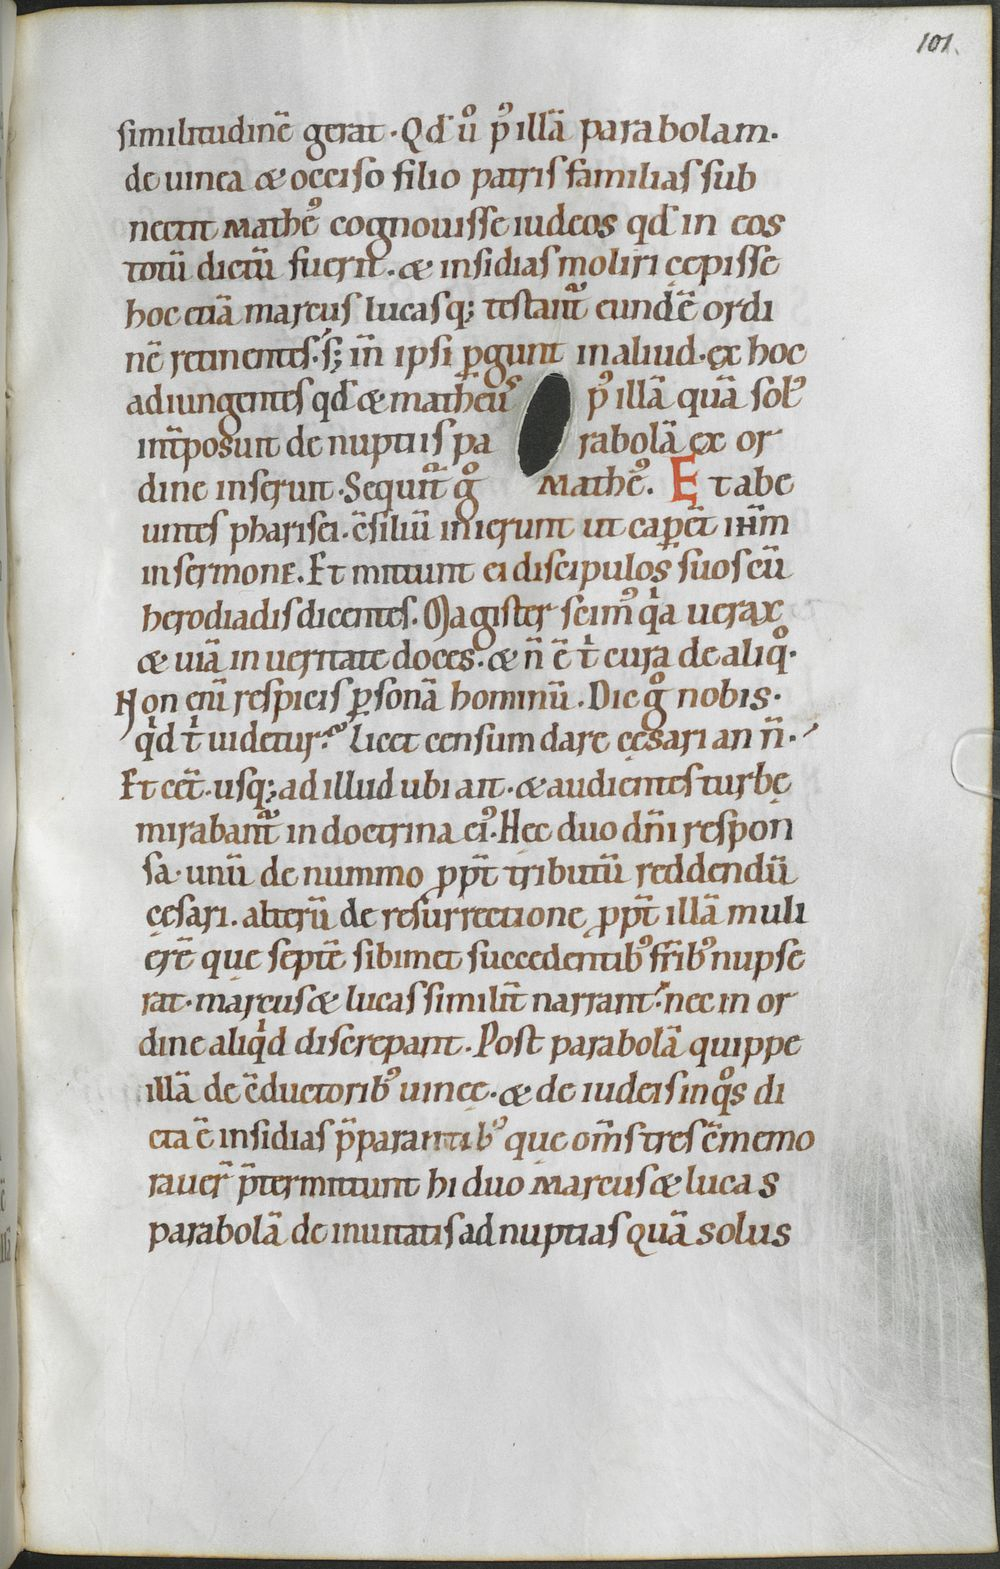 101.
similitudinē gerat. Qd̄ ůͦ pꝰ illā parabolam.
de uinea & occiso filio patris familias sub
nectit matheꝰ cognouisse iudeos qd̄ in eos
totū dictū fuerit. & insidias moliri cępisse
hoc etiā marcus lucasq; testant̄ eundē ordi
nē retinentes. s; in̄ ipsi ꝑgunt in aliud. ex hoc
adiungentes qd̄ & matheus pꝰ illā quā solꝰ
int̄posuit de nuptiis pa rabolā ex or
dine inserunt. Sequit̄ gͦ matheꝰ. Et abe
untes pharisei. c̄siliū inierunt ut caꝑēt ihm̄
in sermone. Et mittunt ei discipulos suos cū
herodiadis dicentes. Magister scimꝰ qͥa uerax
& uiā in ueritate doces. & n̄ ē tͥ cura de aliqͦ.
Non eni̅ respicis ꝑsonā hominū. Dic gͦ nobis.
qͥd tͥ uidetur? Licet censum dare cęsari an n̄.
Et cet̄. usq; ad illud ubi ait. & audientes turbę
mirabant̄ in doctrina eiꝰ. Hec duo dn̄i respon
sa. unū de nummo ꝓpt̄ tributū reddendū
cęsari. alterū de resurrectione ꝓpt̄ illā muli
erē que septē sibimet succedentibꝰ fr̄ibꝰ nupse
rat. marcus & lucas similit̄ narrant. nec in or
dine aliqͥd discrepant. Post parabolā quippe
illā de c̄ductoribꝰ uineę. & de iudeis in qͦs di
cta ē insidias p̄parantibꝰ que om̄s tres c̄memo
rauer̄ p̄termittunt hi duo marcus & lucas
parabolā de inuitatis ad nuptias quā solus